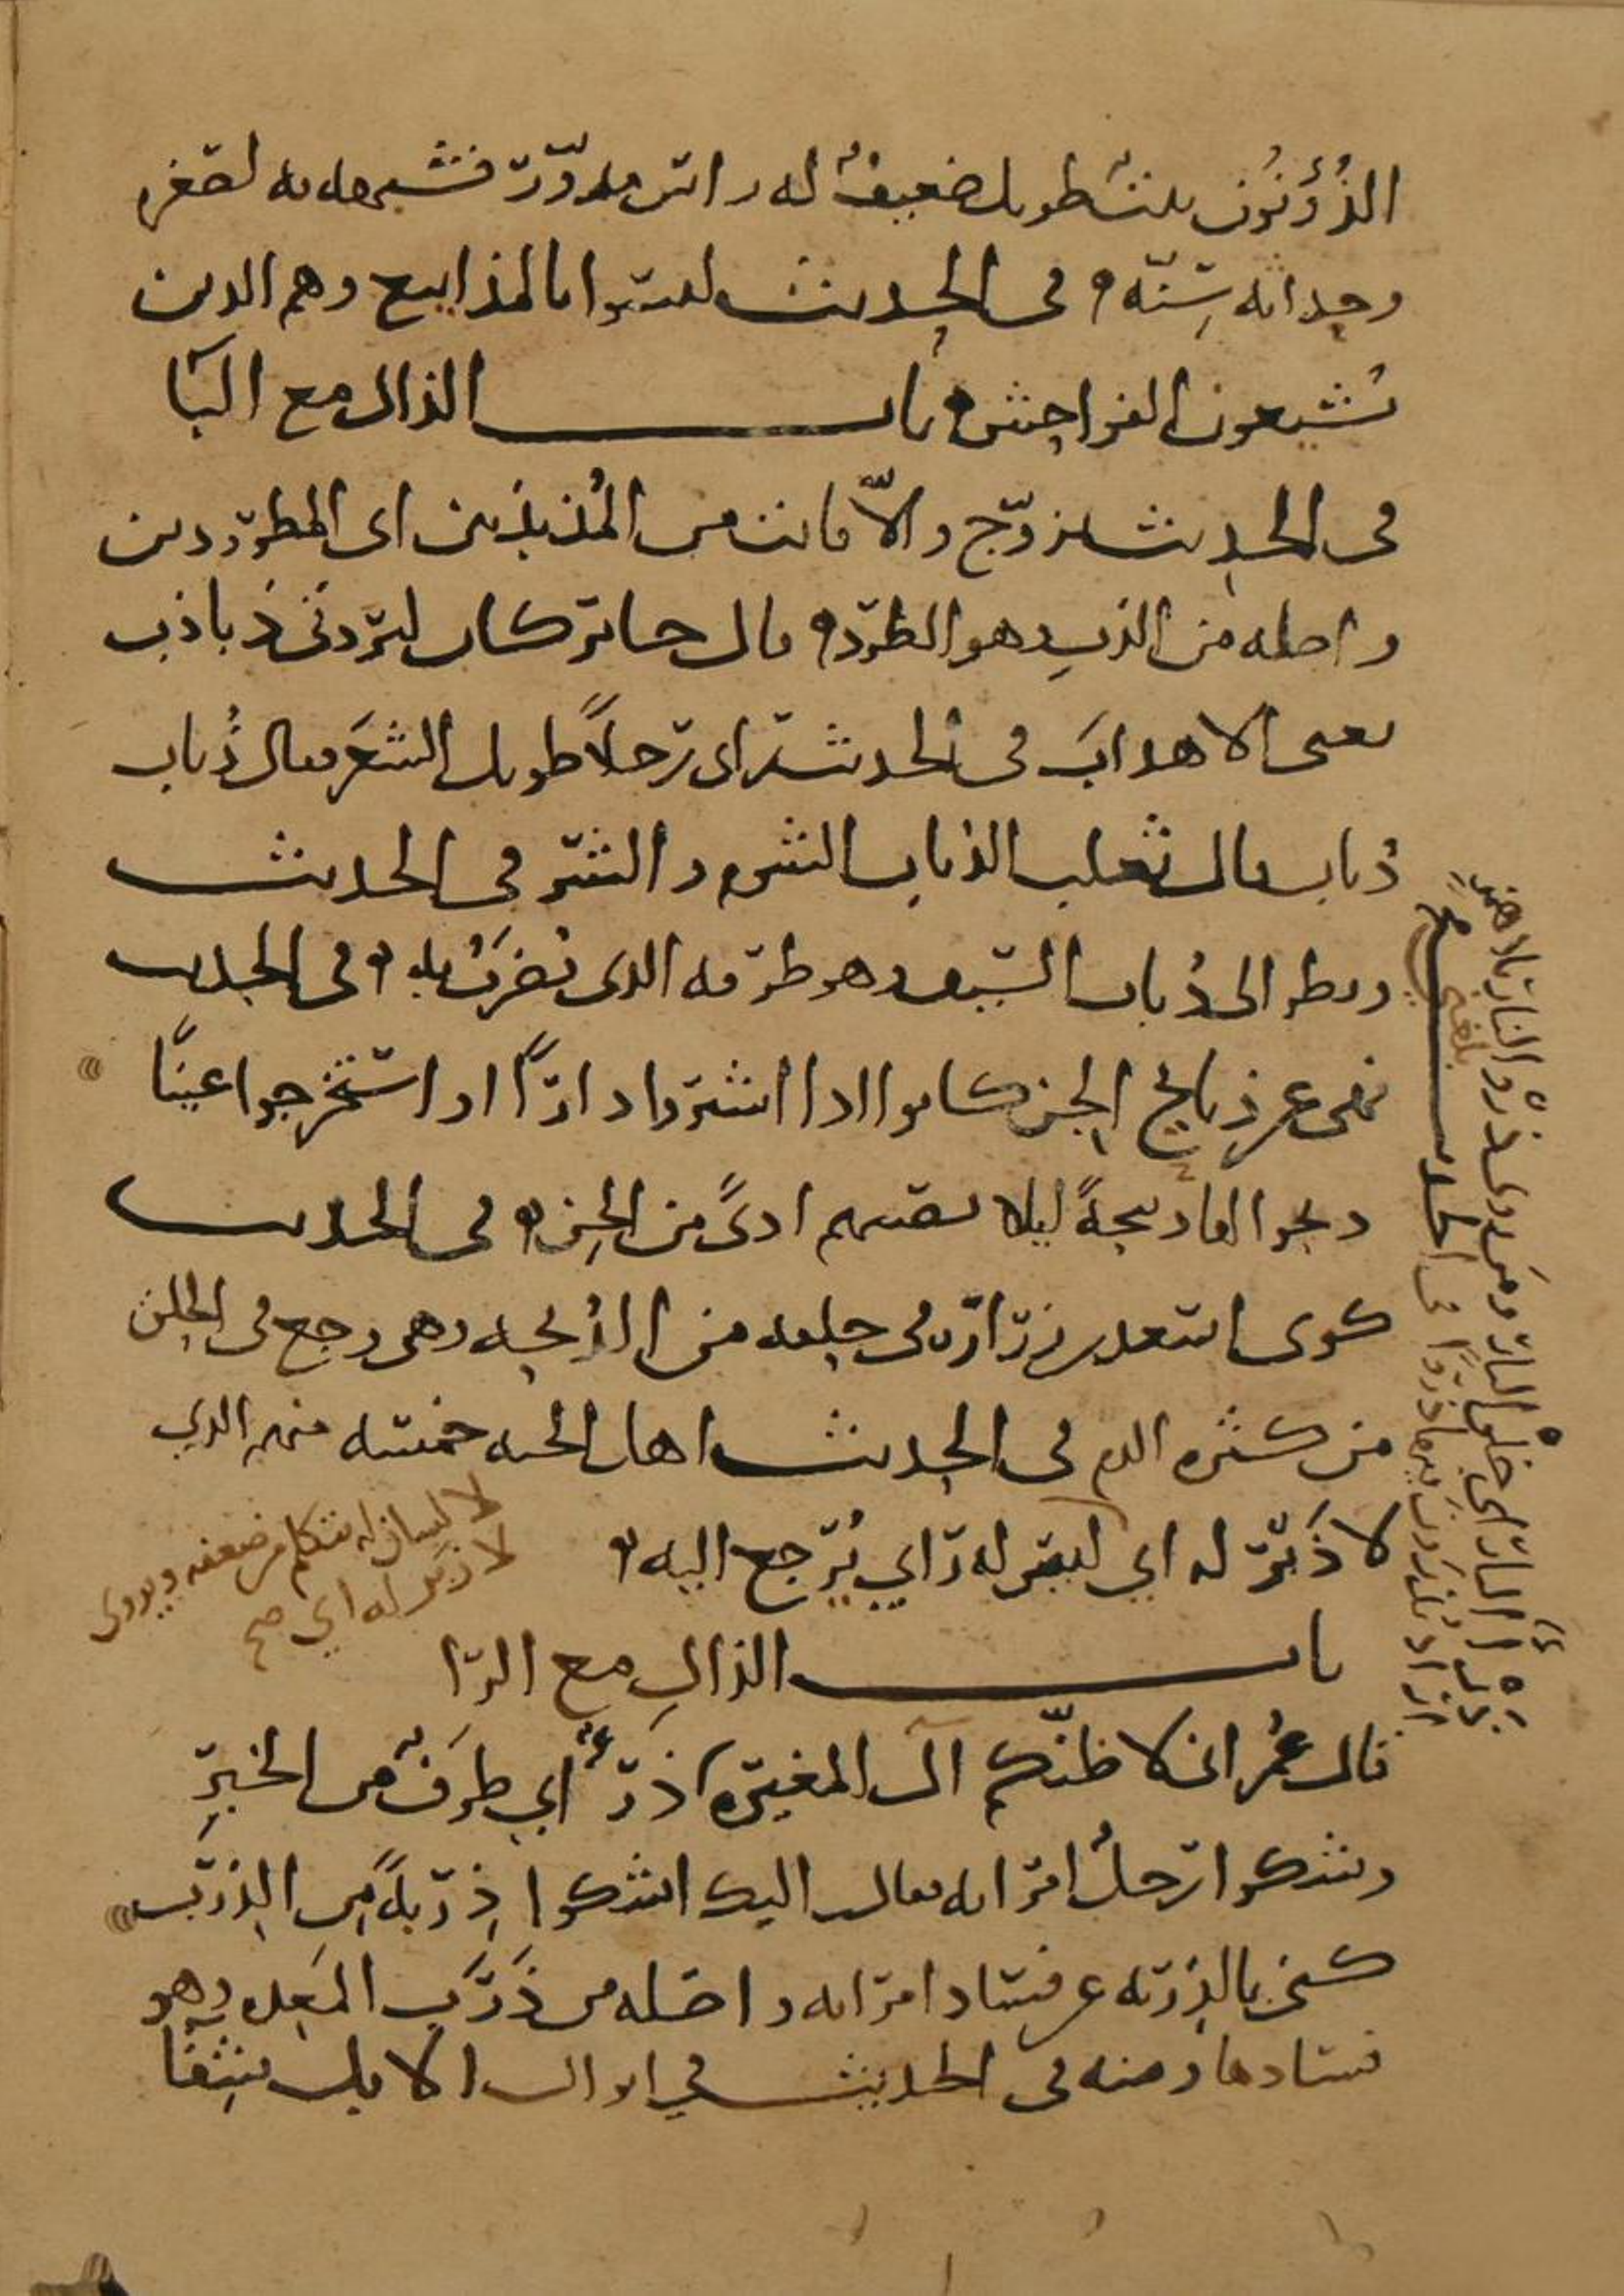 الذُؤنُون نبت طويل ضعيفٌ له راس مدوّر فشبهه به لصغره
وحداثه سِنّه ه في الحديث ليسوا بالمذاييع وهم الذين
يُشيعون الفواحش ه باب الذال مع البَا
في الحديث تزوّج والاّ فانت من المُذبذبين اى المطرّدين
واصله من الذب وهو الطرد ه قال جابر كان لبُردتي ذباذب
يعني الاهداب في الحديث راى رجلاً طويل الشَعر فقال ذُباب
ذُباب قال ثعلب الذباب الشوم والشر في الحديث
ونظر الى ذُباب السيف وهو طرفه الذى يُضرَبُ به ه في الحديث
نهى عن ذبايح الجن كانوا اذا اشتروا دارًا او استخرجوا عينًا
ذبحوا لها ذبيحةً ليلا يصيبهم اذىً من الجن ه في الحديث
كوى اسعد بن زرارة في حلقه من الذُبحه وهى وجع في الحلق
من كثره الدم في الحديث اهل الجنه خمسه منهم الذي
لا ذَبْرَ له اي ليس له راي يُرجع اليه ه
لا لسان له يتكلم من ضعفه ويروى
لا زبر له اي صح
باب الذالِ مع الرّا
قال عُمر انى لاظنّكم آل المغيره ذرءُ اي طرفٌ من الخبر
وشكوا رجلُ امراته فقال اليك اشكوا ذِربةً مِن الذِرَب
كنى بالذِربه عن فساد امراته واصله من ذَرَبِ المَعِده وهو
فسادها ومنه في الحديث في ابوال الابل شِفَا
في الحديث
بلغ